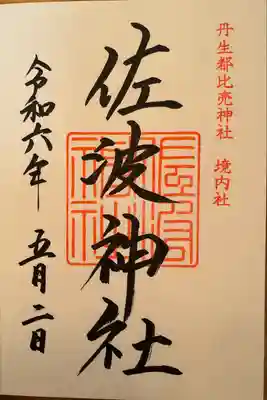 丹生都比売神社 境内社
佐波神社
令和六年 五月二日